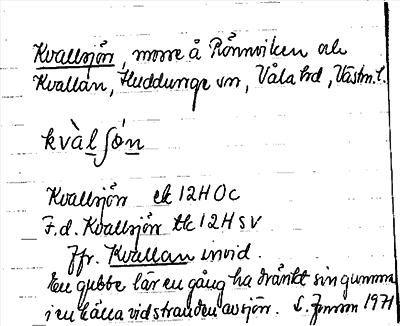 Kvallsjön, norre å Rönnviken och
Kvallån, Huddunge sn, Våla hd, Västm. l.
kvàlʃó̱n
Kvallsjön ek 12H 0c
F.d. Kvallsjön tk 12H SV
Jfr. Kvallan invid.
En gubbe lär en gång ha dränkt sin gumma
i en källa vid stranden av sjön. 1971